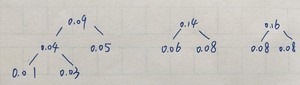 0.09 0.14 0.16
0.04 0.05 0.06 0.08 0.08 0.08
0.01 0.03